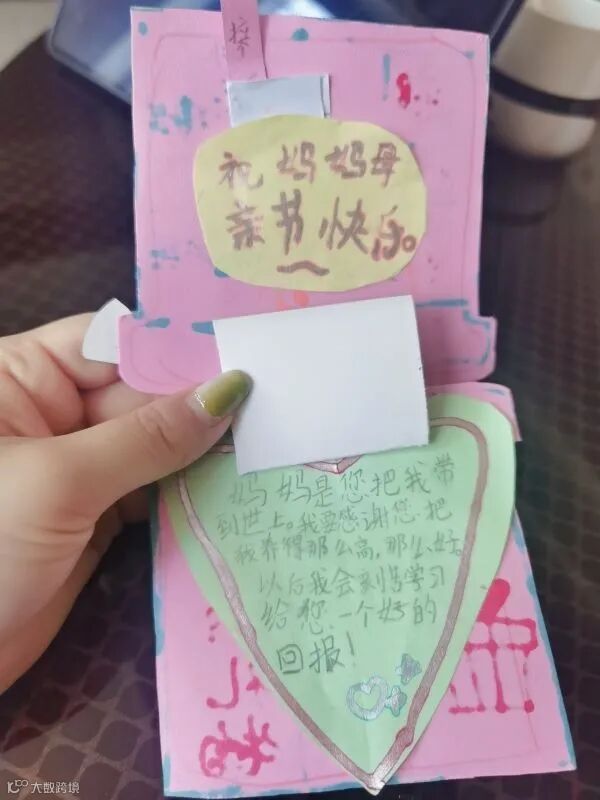 祝妈妈母
亲节快乐。
妈妈是您把我带
到世上。我要感谢您把
我养得那么高,那么好。
以后我会刻苦学习
给您一个好的
回报!
大数跨境